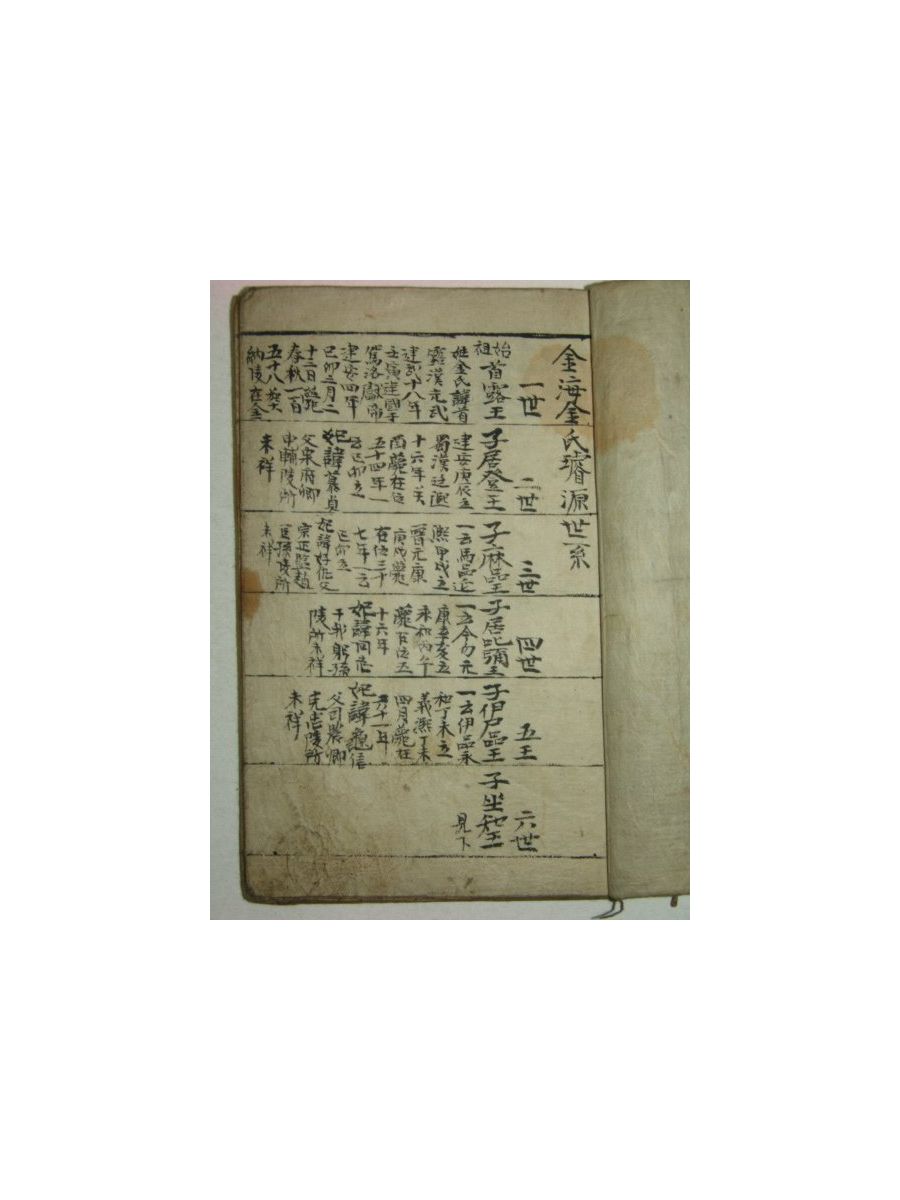 金海金氏璿源世系
一世
始祖首露王
姓金氏諱首
露漢元武
建武十八年
壬寅建國于
駕洛獻帝
建安四年
己卯三月二
十三日薨
春秋一百
五十八葬
納陵在金
二世
子居登王
建安庚辰立
蜀漢延熙
十六年癸
酉薨在位
五十四年一
云己卯立
妃諱慕貞
父泉府卿
申輔陵所
未祥
三世
子麻品王
一云馬品延
熙甲戌立
晉元康
庚戌薨
在位三十
七年一云
己卯立
妃諱好仇父
宗正監趙
匡孫陵所
未祥
四世
子居叱彌王
一云今勿元
康辛亥立
永和丙午
薨在位五
十六年
妃諱阿志
干躬孫
陵所未祥
五王
子伊尸品王
一云伊品永
和丁未立
義熙丁未
四月薨在
六十一年
妃諱貞信
父司農卿
克忠陵所
未祥
六世
子坐知王
見下